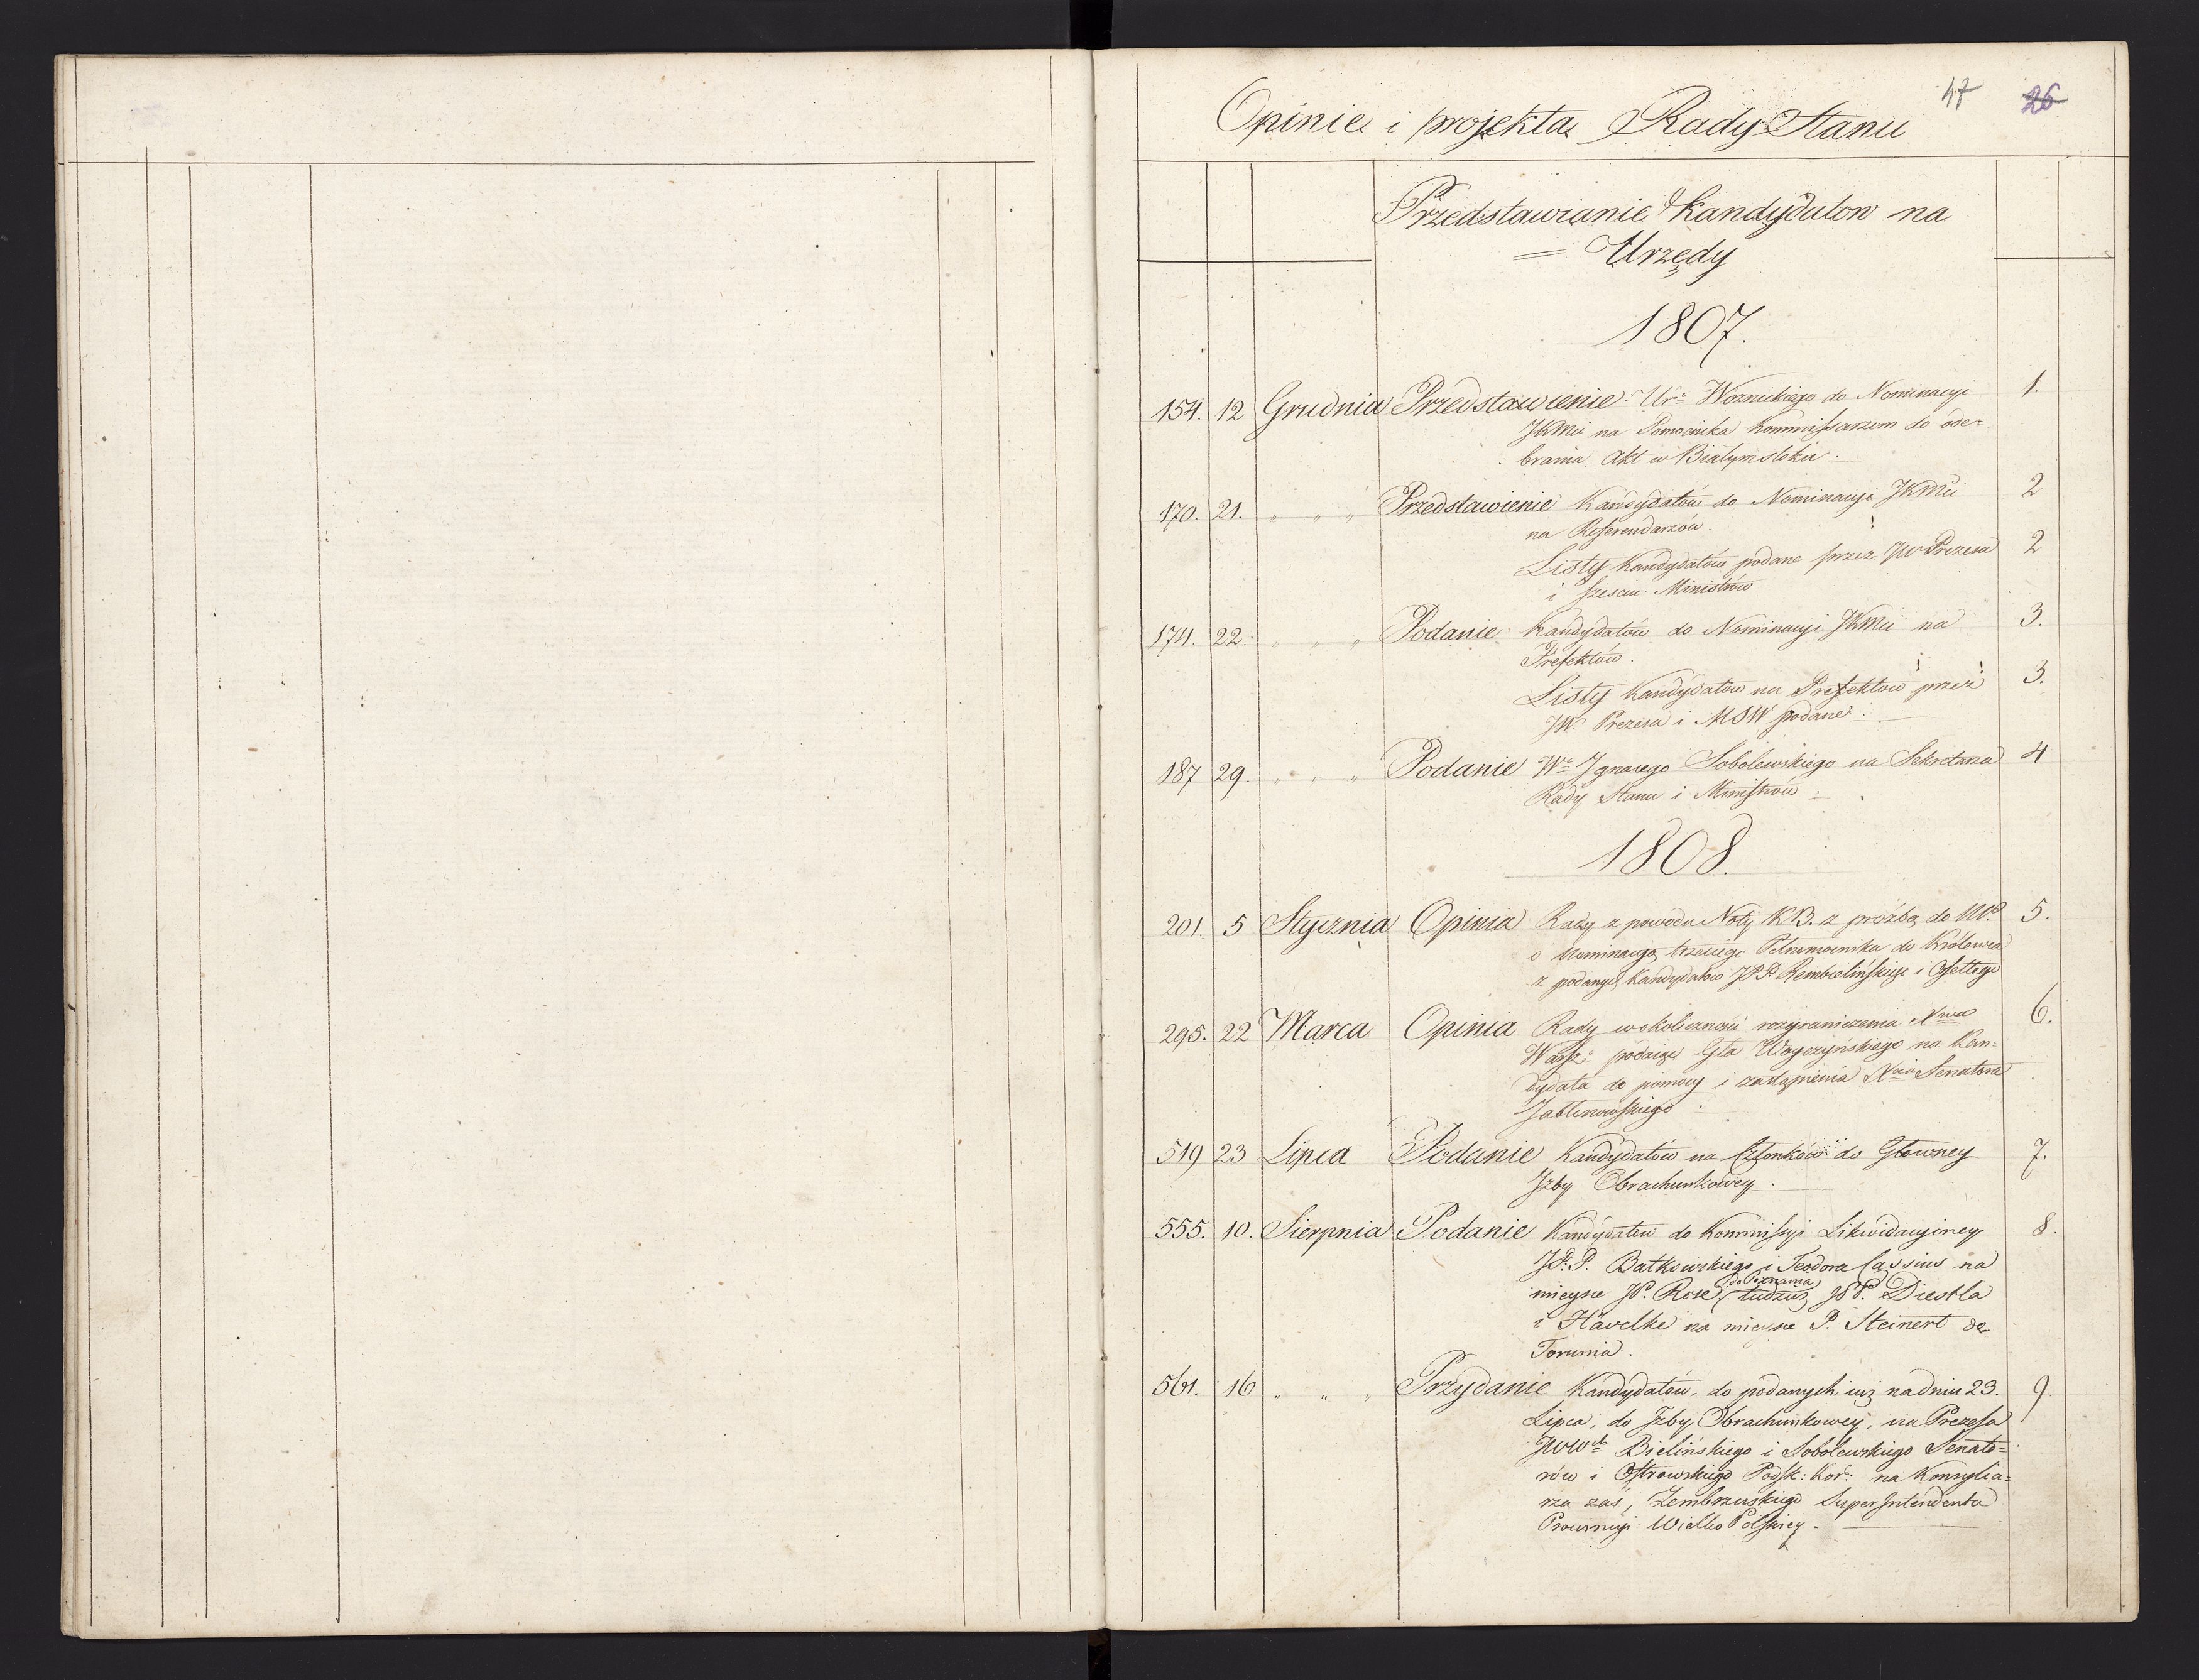 47 26
Opinie i projekta Rady Stanu
Przedstawianie Kandydatow na
= Urzędy
1807.
154. 12 Grudnia Przedstawienie Ur: Woznickiego do Nominacyi 1.
JKMci na Pomocnika Kommissarzom do ode-
brania Akt w Białymstoku.
170. 21. " " " Przedstawienie Kandydatów do Nominacyi JKMci 2
na Referendarzów.
Listy Kandydatów podane przez JW Prezesa 2
i szesciu Ministrów
174. 22. " " " Podanie Kandydatów do Nominacyi JKMci na 3.
Prefektów.
Listy Kandydatów na Prefektow przez 3.
JW. Prezesa i MSW podane.
187 29. " " " Podanie We Ignacego Sobolewskiego na Sekretarza 4
Rady Stanu i Ministrów.
1808.
201. 5 Stycznia Opinia Rady z powodu Noty KB. z prozbą do 5.
o Nominacyą trzeciego Pełnomocnika do Królewca
z podanych Kandydatow JPP. Rembielińskiego i Ossettego
295. 22 Marca Opinia Rady w okoliczności rozgraniczenia Xwa 6.
Warsz: podaiąca Gła Woyczyńskiego na Kan-
dydata do pomocy i zastąpienia Xcia Senatora
Jabłonowskiego.
519 23 Lipca Podanie Kandydatów na Członków do Głowney 7.
Izby Obrachunkowey.
555. 10. Sierpnia Podanie Kandydatow do Kommissyi Likwidacyiney 8.
JP. P. Batkowskiego i Teodora Cassius na
mieysce JP. Rose (do Poznania) tudzież JPP. Diestla
i Havelke na mieysce P. Steinert do
Torunia.
561. 16 " " " Przydanie Kandydatów, do podanych iuż na dniu 23. 9.
Lipca, do Izby Obrachunkowey, na Prezesa
JWWch Bielińskiego i Sobolewskiego Senato=
rów i Ostrowskiego Podsk: Kor: na Konsylia=
rza zaś, Zembrzuskiego Super Intendenta
Prowincyi Wielko Polskiey.